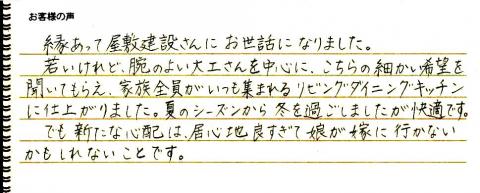 お客様の声
縁あって屋敷建設さんにお世話になりました。
若いけれど、腕のよい大工さんを中心に、こちらの細かい希望を
聞いてもらえ、家族全員がいつも集まれるリビングダイニングキッチン
に仕上がりました。夏のシーズンから冬を過ごしましたが快適です。
でも新たな心配は、居心地良すぎて娘が嫁に行かない
かもしれないことです。